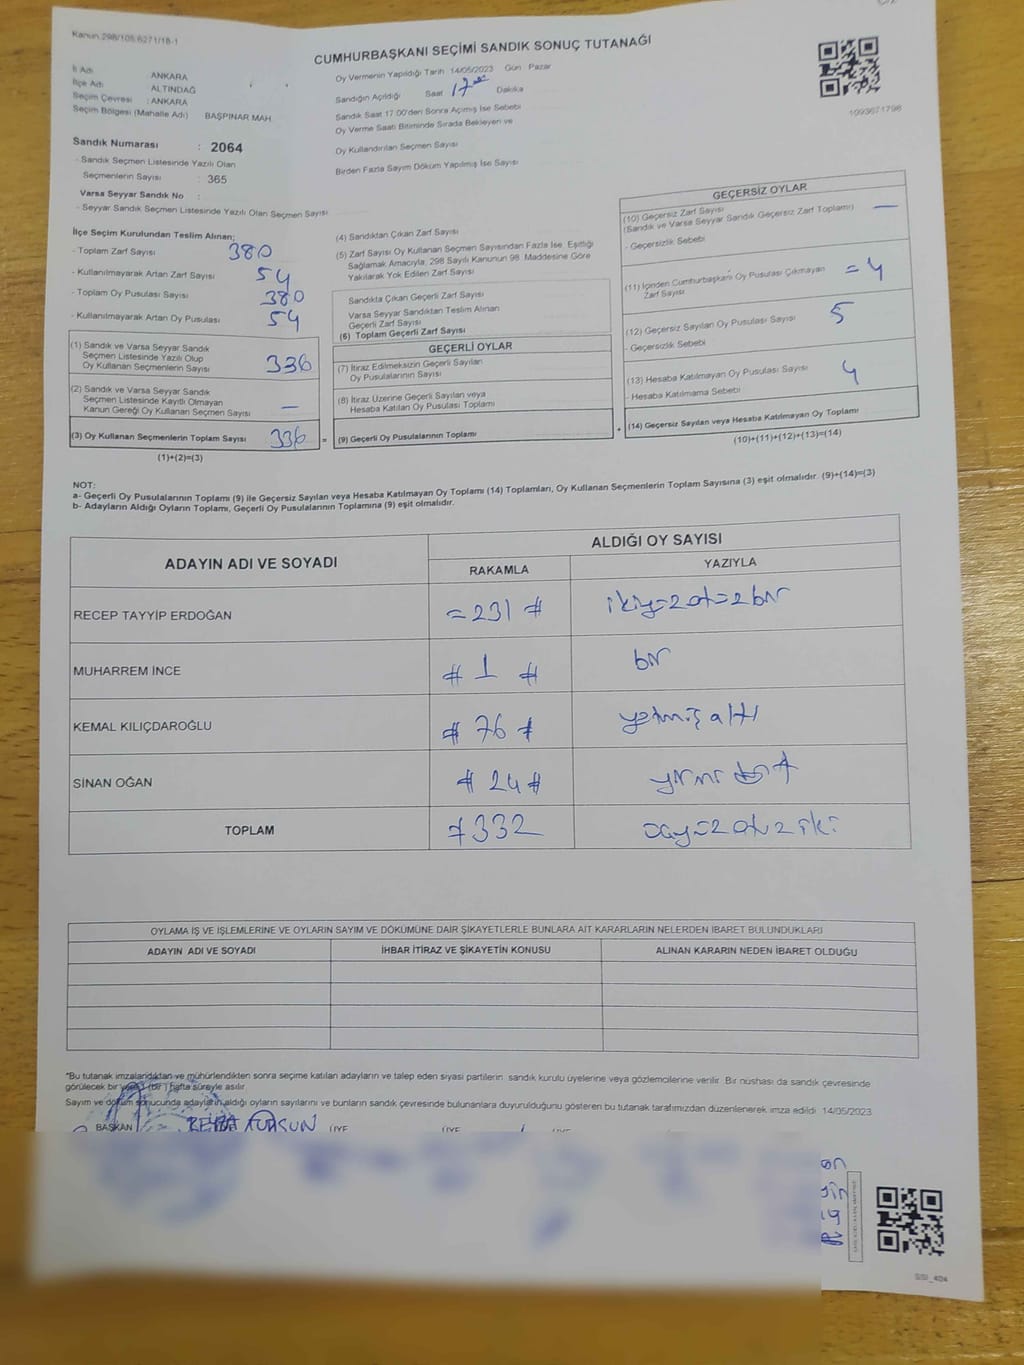 Kanun:298/105,6271/18-1
CUMHURBAŞKANI SEÇİMİ SANDIK SONUÇ TUTANAĞI
İl Adı : ANKARA
İlçe Adı : ALTINDAĞ
Seçim Çevresi : ANKARA
Seçim Bölgesi (Mahalle Adı) BAŞPINAR MAH.
Sandık Numarası : 2064
- Sandık Seçmen Listesinde Yazılı Olan
Seçmenlerin Sayısı : 365
Varsa Seyyar Sandık No :
- Seyyar Sandık Seçmen Listesinde Yazılı Olan Seçmen Sayısı
Oy Vermenin Yapıldığı Tarih 14/05/2023 Gün Pazar
Sandığın Açıldığı Saat 17 Dakika
Sandık Saat 17:00'den Sonra Açılmış İse Sebebi
Oy Verme Saati Bitiminde Sırada Bekleyen ve
Oy Kullandırılan Seçmen Sayısı
Birden Fazla Sayım Döküm Yapılmış İse Sayısı
1093671798
İlçe Seçim Kurulundan Teslim Alınan;
- Toplam Zarf Sayısı 380
- Kullanılmayarak Artan Zarf Sayısı 54
- Toplam Oy Pusulası Sayısı 380
- Kullanılmayarak Artan Oy Pusulası 54
(1) Sandık ve Varsa Seyyar Sandık
Seçmen Listesinde Yazılı Olup
Oy Kullanan Seçmenlerin Sayısı 336
(2) Sandık ve Varsa Seyyar Sandık
Seçmen Listesinde Kayıtlı Olmayan
Kanun Gereği Oy Kullanan Seçmen Sayısı —
(3) Oy Kullanan Seçmenlerin Toplam Sayısı 336 =
(1)+(2)=(3)
(4) Sandıktan Çıkan Zarf Sayısı
(5) Zarf Sayısı Oy Kullanan Seçmen Sayısından Fazla İse, Eşitliği
Sağlamak Amacıyla, 298 Sayılı Kanunun 98. Maddesine Göre
Yakılarak Yok Edilen Zarf Sayısı
Sandıkta Çıkan Geçerli Zarf Sayısı
Varsa Seyyar Sandıktan Teslim Alınan
Geçerli Zarf Sayısı
(6) Toplam Geçerli Zarf Sayısı
GEÇERLİ OYLAR
(7) İtiraz Edilmeksizin Geçerli Sayılan
Oy Pusulalarının Sayısı
(8) İtiraz Üzerine Geçerli Sayılan veya
Hesaba Katılan Oy Pusulası Toplamı
(9) Geçerli Oy Pusulalarının Toplamı +
GEÇERSİZ OYLAR
(10) Geçersiz Zarf Sayısı
(Sandık ve Varsa Seyyar Sandık Geçersiz Zarf Toplamı) —
- Geçersizlik Sebebi
(11) İçinden Cumhurbaşkanı Oy Pusulası Çıkmayan
Zarf Sayısı = 4
(12) Geçersiz Sayılan Oy Pusulası Sayısı 5
- Geçersizlik Sebebi
(13) Hesaba Katılmayan Oy Pusulası Sayısı 4
- Hesaba Katılmama Sebebi
(14) Geçersiz Sayılan veya Hesaba Katılmayan Oy Toplamı
(10)+(11)+(12)+(13)=(14)
NOT:
a- Geçerli Oy Pusulalarının Toplamı (9) ile Geçersiz Sayılan veya Hesaba Katılmayan Oy Toplamı (14) Toplamları, Oy Kullanan Seçmenlerin Toplam Sayısına (3) eşit olmalıdır. (9)+(14)=(3)
b- Adayların Aldığı Oyların Toplamı, Geçerli Oy Pusulalarının Toplamına (9) eşit olmalıdır.
ADAYIN ADI VE SOYADI ALDIĞI OY SAYISI
RAKAMLA YAZIYLA
RECEP TAYYİP ERDOĞAN = 231 # ikiyüzotuzbir
MUHARREM İNCE # 1 # bir
KEMAL KILIÇDAROĞLU # 76 # yetmişaltı
SİNAN OĞAN # 24 # yirmi
TOPLAM #332 üçyüzotuziki
OYLAMA İŞ VE İŞLEMLERİNE VE OYLARIN SAYIM VE DÖKÜMÜNE DAİR ŞİKAYETLERLE BUNLARA AİT KARARLARIN NELERDEN İBARET BULUNDUKLARI
ADAYIN ADI VE SOYADI İHBAR İTİRAZ VE ŞİKAYETİN KONUSU ALINAN KARARIN NEDEN İBARET OLDUĞU
*Bu tutanak imzalandıktan ve mühürlendikten sonra seçime katılan adayların ve talep eden siyasi partilerin sandık kurulu üyelerine veya gözlemcilerine verilir. Bir nüshası da sandık çevresinde
görülecek bir yere 1 (bir) hafta süreyle asılır.
Sayım ve döküm sonucunda adayların aldığı oyların sayılarını ve bunların sandık çevresinde bulunanlara duyurulduğunu gösteren bu tutanak tarafımızdan düzenlenerek imza edildi. 14/05/2023
BAŞKAN ÜYE ÜYE ÜYE